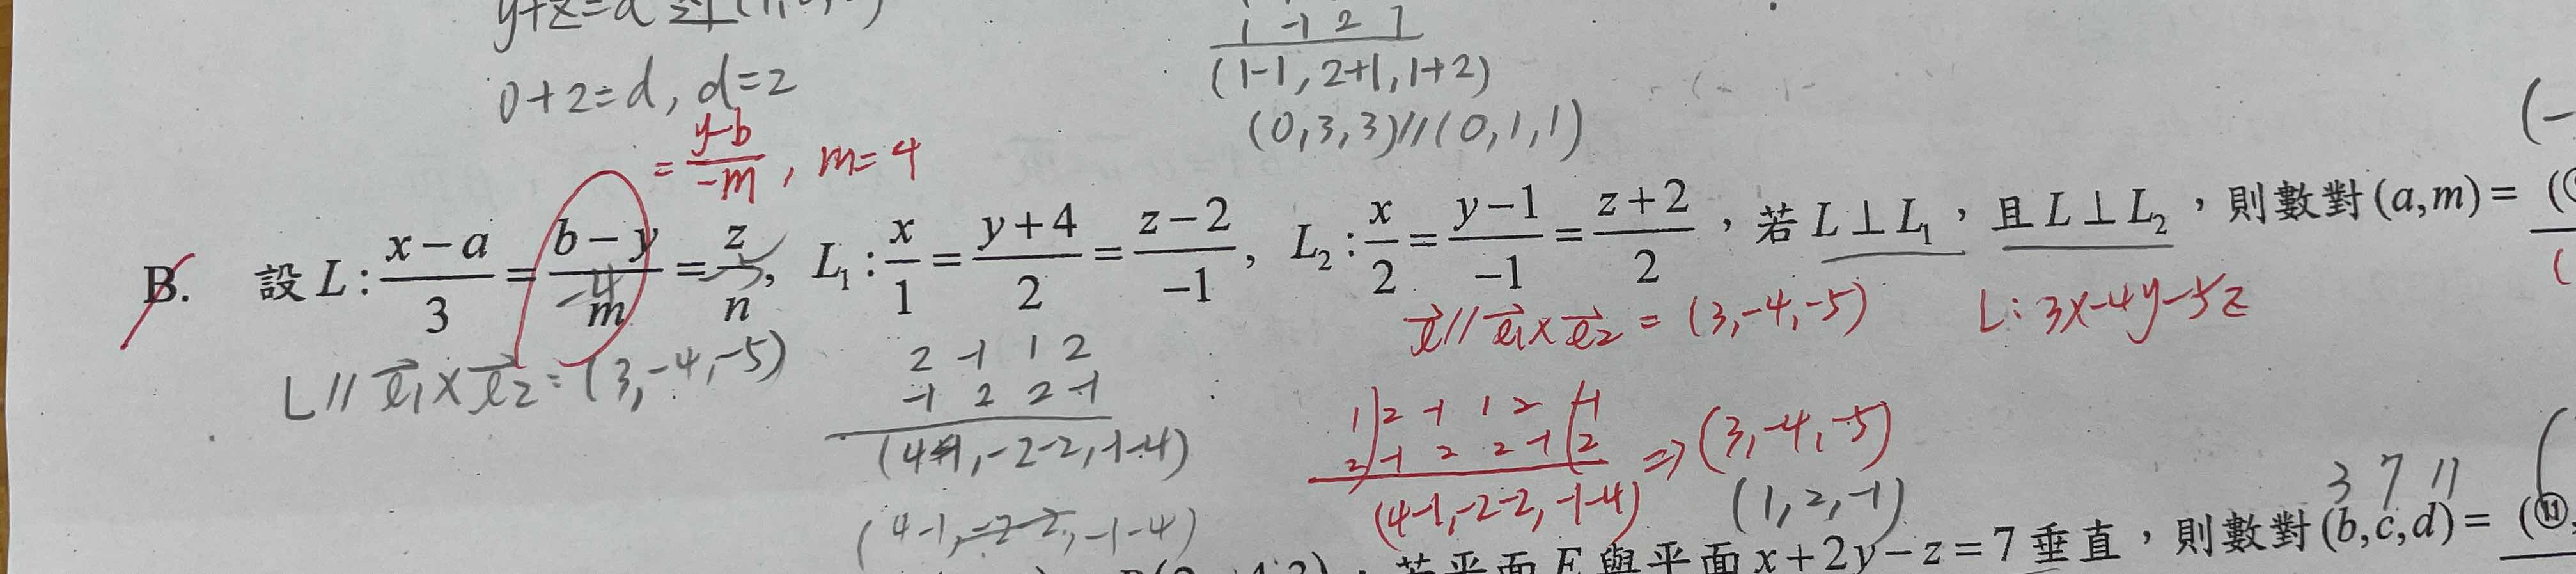 y+z=d
1 -1 2 1
0+2=d, d=2
(1-1, 2+1, 1+2)
(0,3,3)//(0,1,1)
= \frac{y-b}{-m}, m=4
B. 設 L: \frac{x-a}{3} = \frac{b-y}{m} = \frac{z}{n}, L₁: \frac{x}{1} = \frac{y+4}{2} = \frac{z-2}{-1}, L₂: \frac{x}{2} = \frac{y-1}{-1} = \frac{z+2}{2},若 L⊥L₁,且 L⊥L₂,則數對(a,m)=
-4
L // \vec{l_1} × \vec{l_2} = (3,-4,-5)
\vec{l} // \vec{l_1} × \vec{l_2} = (3,-4,-5) L: 3x-4y-5z
2 -1 1 2
-1 2 2 -1
(4-1, -2-2, -1-4)
(4-1, -2-2, -1-4)
1 2 -1 1 2 -1
2 -1 2 2 -1 2
⇒ (3,-4,-5)
(4-1, -2-2, -1-4)
(1,2,-1)
3 7 11
若平面 E 與平面 x+2y-z=7 垂直,則數對(b,c,d)= (⑪